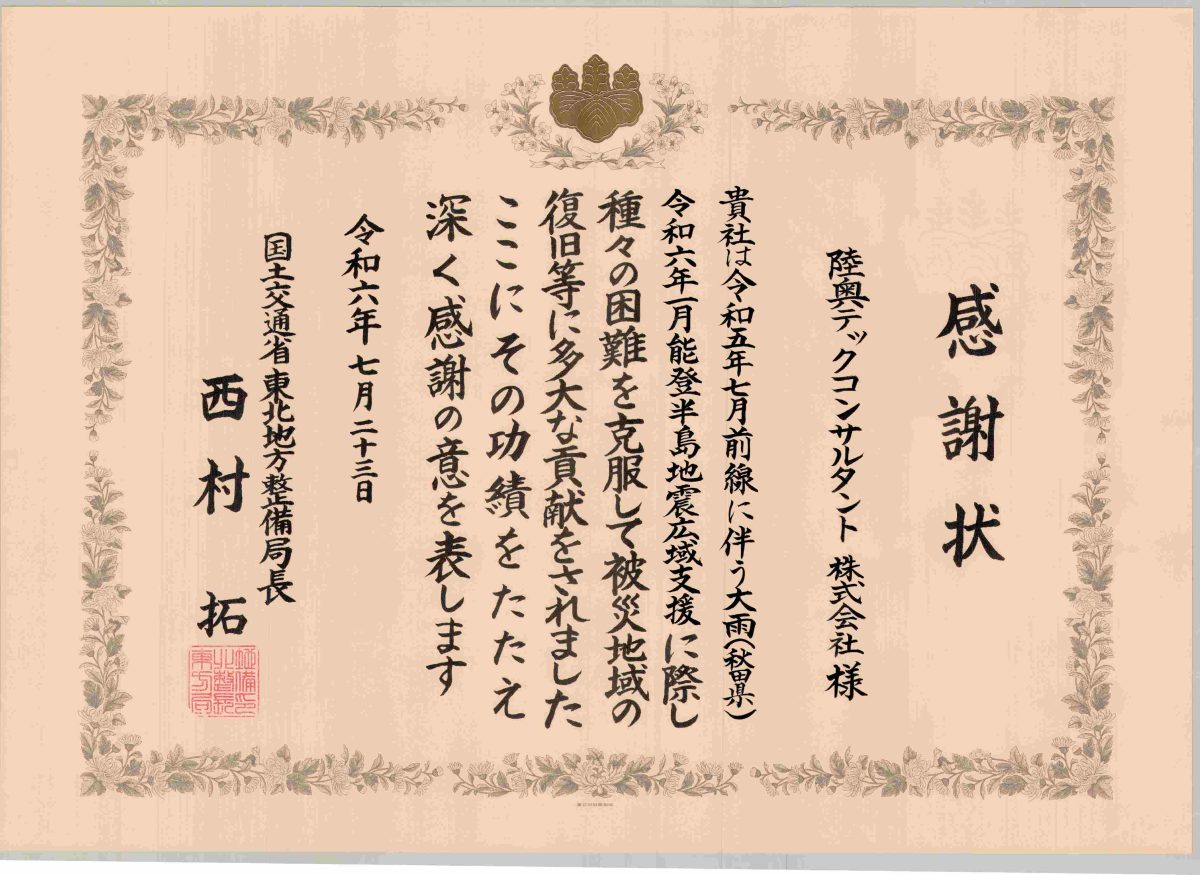 感謝状
陸奥テックコンサルタント 株式会社 様
貴社は令和五年七月前線に伴う大雨(秋田県)
令和六年一月能登半島地震広域支援に際し
種々の困難を克服して被災地域の
復旧等に多大な貢献をされました
ここにその功績をたたえ
深く感謝の意を表します
令和六年 七月 二十三日
国土交通省 東北地方整備局長
西村 拓